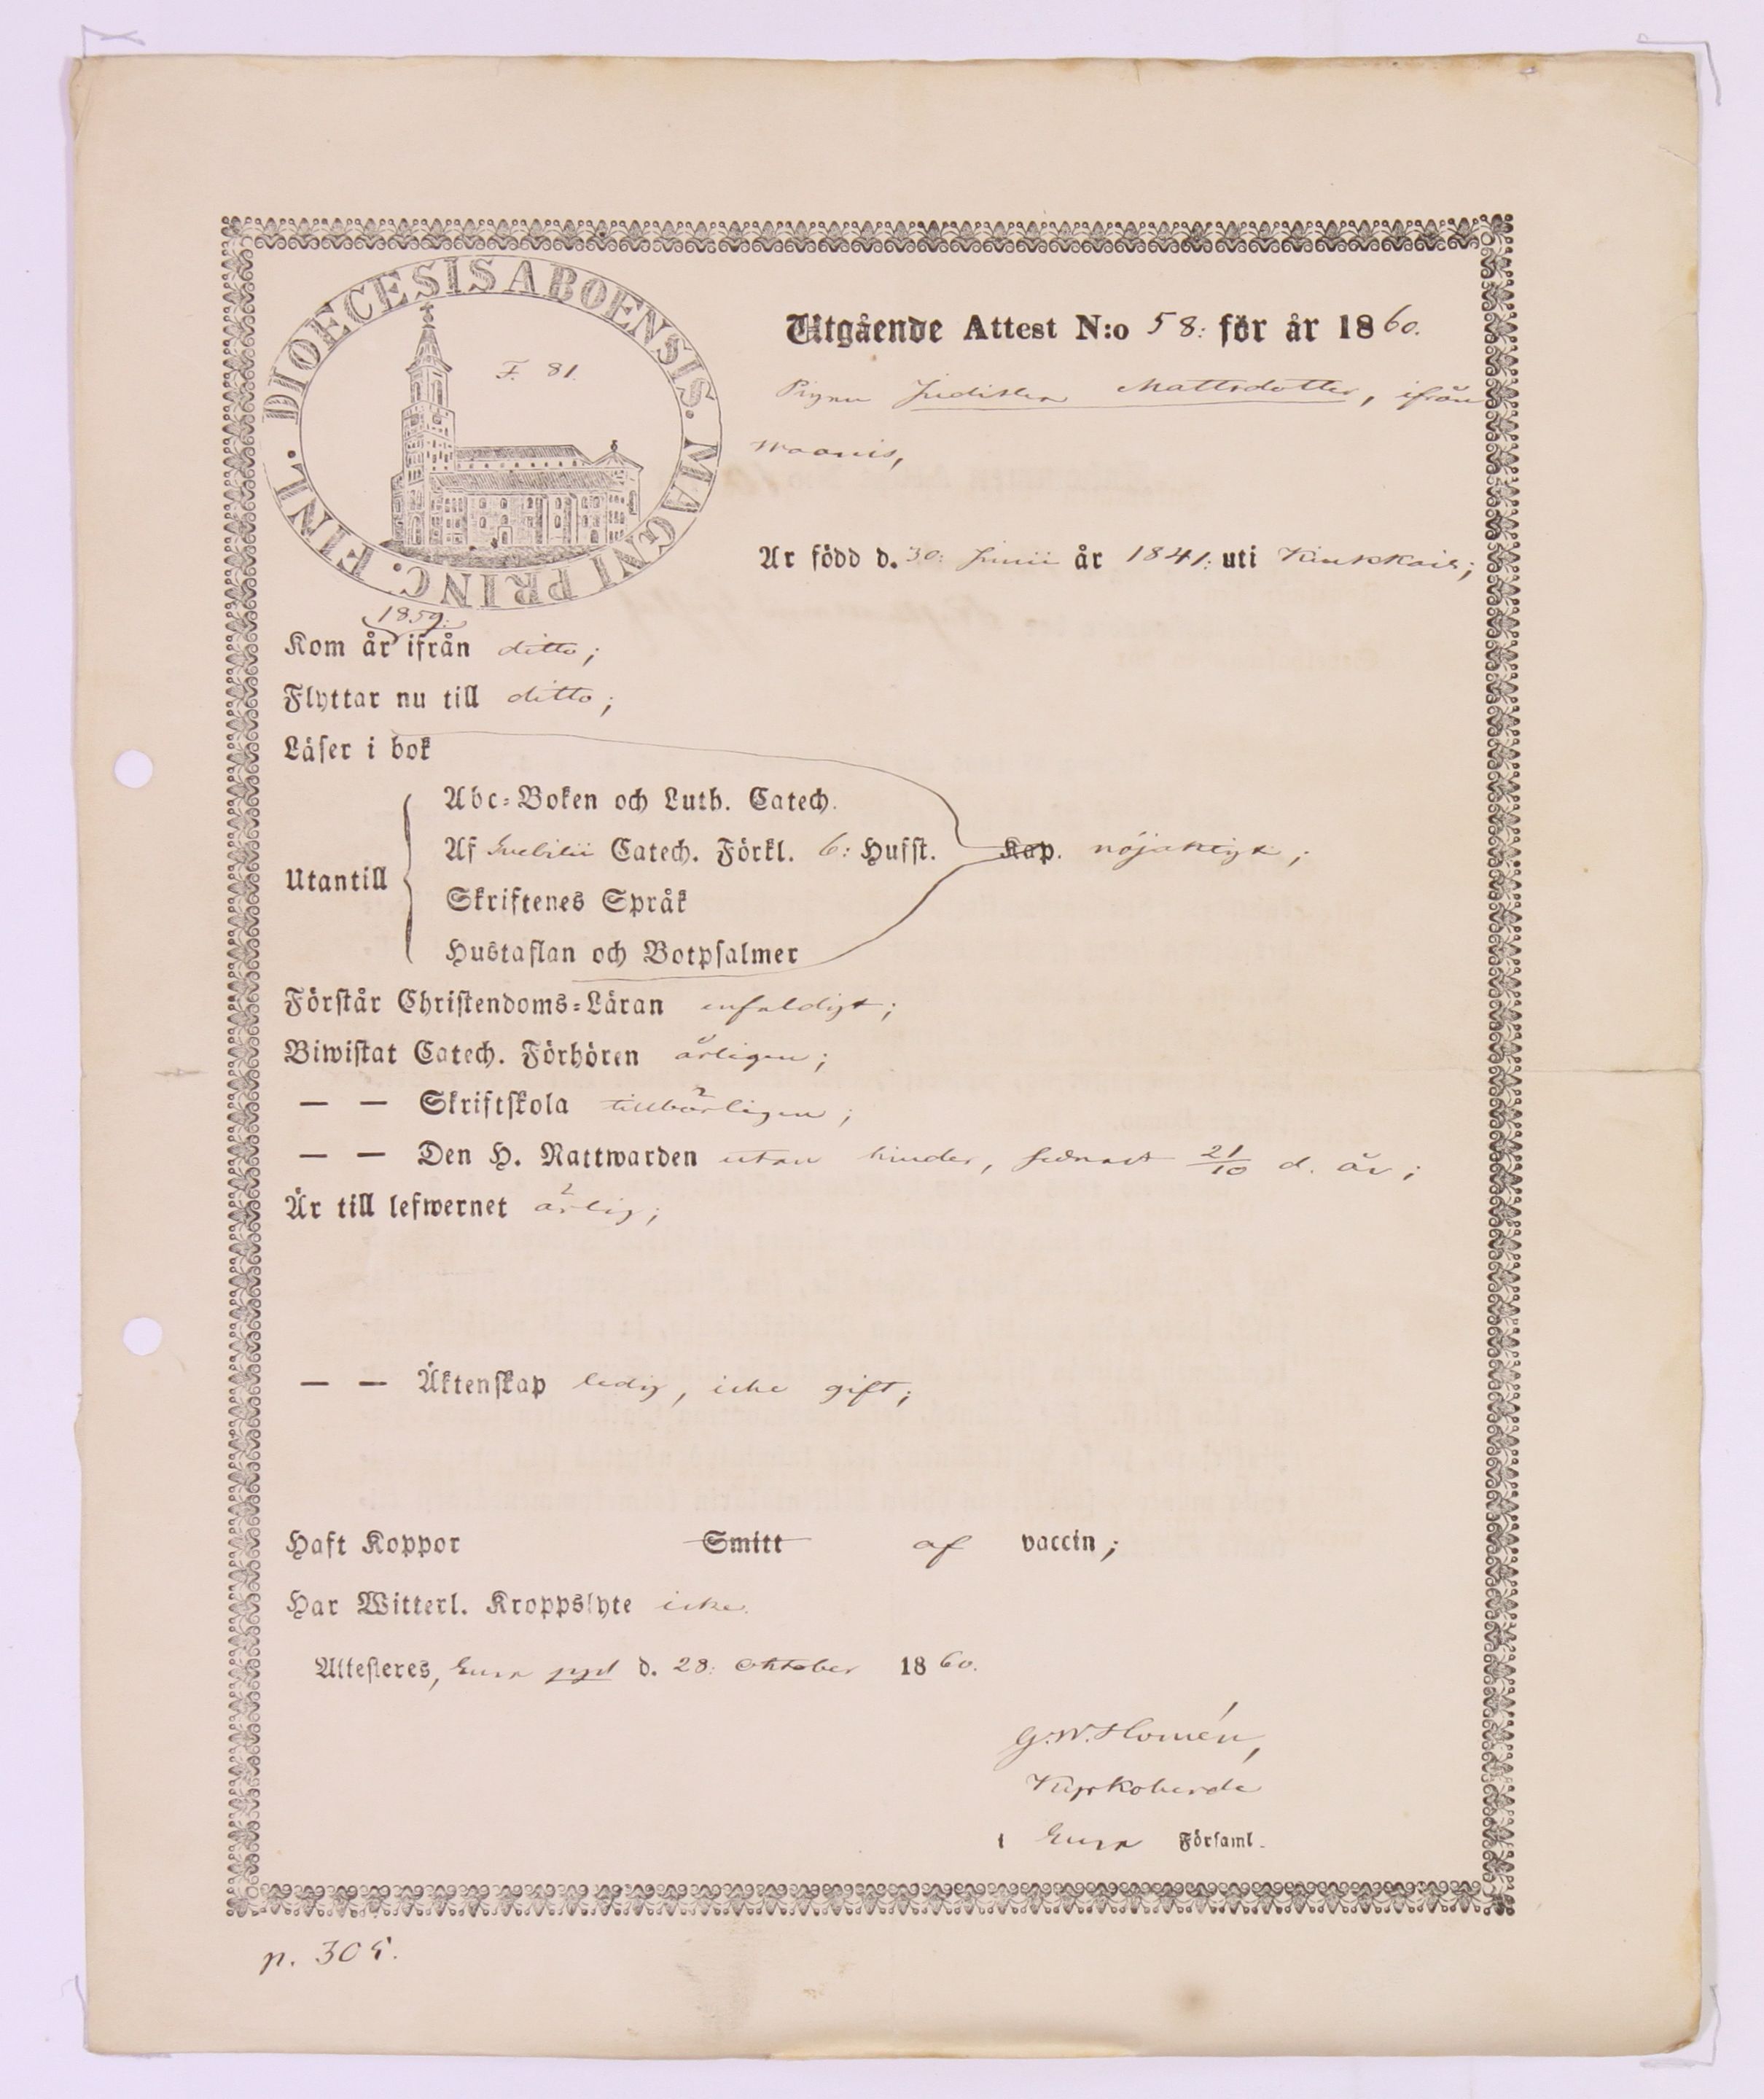 DIOECESIS ABOENSIS. MAGNI PRINC. FINL.
F. 81.
Utgående Attest N:o 58: för år 1860.
Pigan Mattsdotter, ifrån
Är född d. 30: Junii år 1841: uti Kiukkais;
1859:
Kom år ifrån ditto;
Flyttar nu till ditto;
Läser i bok
Abc-Boken och Luth. Catech.
Utantill
Af Svebilii Catech. Förkl. 6: Husst. Kap. nöjaktigt;
Skriftenes Språk
Hustaflan och Botpsalmer
Förstår Christendoms-Läran enfaldigt;
Biwistat Catech. Förhören årligen;
— — Skriftskola tillbörligen;
— — Den H. Nattwarden utan hinder, sednast 21/10 d. år;
Är till lefwernet ärlig;
— — Äktenskap ledig, icke gift;
Haft Koppor Smitt af vaccin;
Har Witterl. Kroppslyte icke.
Attesteres, Eura pgd d. 28: Oktober 1860.
G.W. Homén,
Kyrkoherde
i Eura Församl.
p. 305.